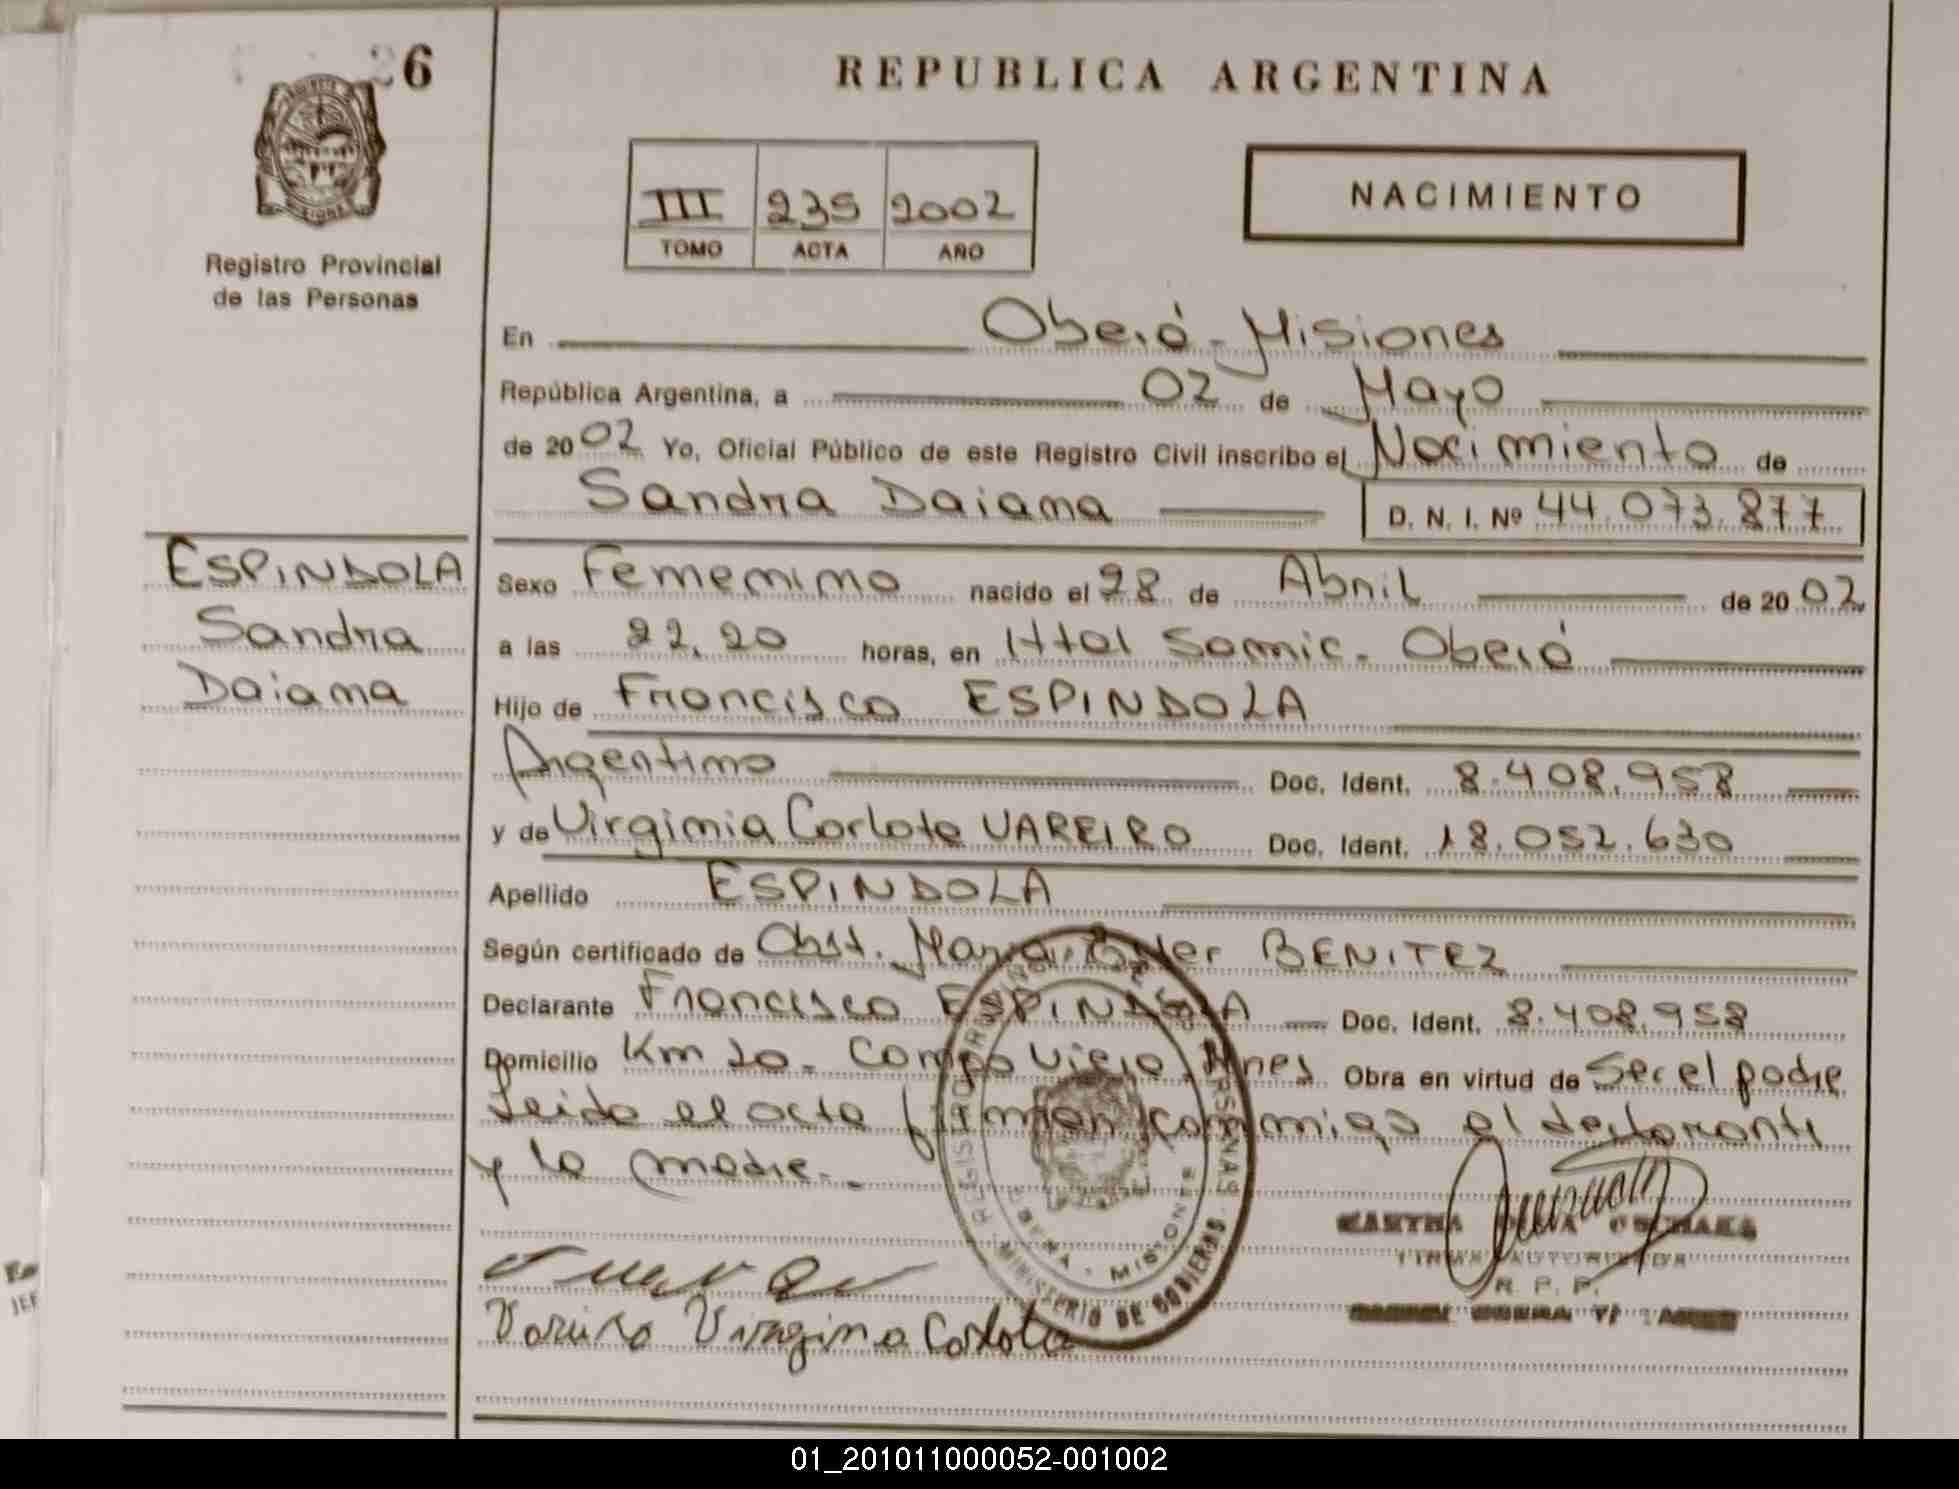 26
REPUBLICA ARGENTINA
NACIMIENTO
III 235 2002
TOMO ACTA AÑO
Registro Provincial
de las Personas
En Oberá - Misiones
República Argentina, a 02 de Mayo
de 2002 Yo, Oficial Público de este Registro Civil inscribo el Nacimiento de
Sandra Daiana D. N. I. Nº 44.073.877
ESPINDOLA
Sandra
Daiana
Sexo Femenino nacido el 28 de Abril de 2002
a las 22,20 horas, en Htal Samic - Oberá
Hijo de Francisco ESPINDOLA
Argentino Doc. Ident. 8.408.958
y de Virginia Carlota VAREIRO Doc. Ident. 18.052.630
Apellido ESPINDOLA
Según certificado de Obst. Maria Ester BENITEZ
Declarante Francisco ESPINDOLA Doc. Ident. 8.408.958
Domicilio Km 10 - Campo Viera, Mnes Obra en virtud de Ser el padre
Leida el acta firman conmigo el declarante
y la madre.
REGISTRO PERSONAS
OBERA - MISIONES
MINISTERIO DE GOBIERNO
MARTHA
FIRMA AUTORIZADA
R. P. P.
Vareiro Virginia Carlota
01_201011000052-001002